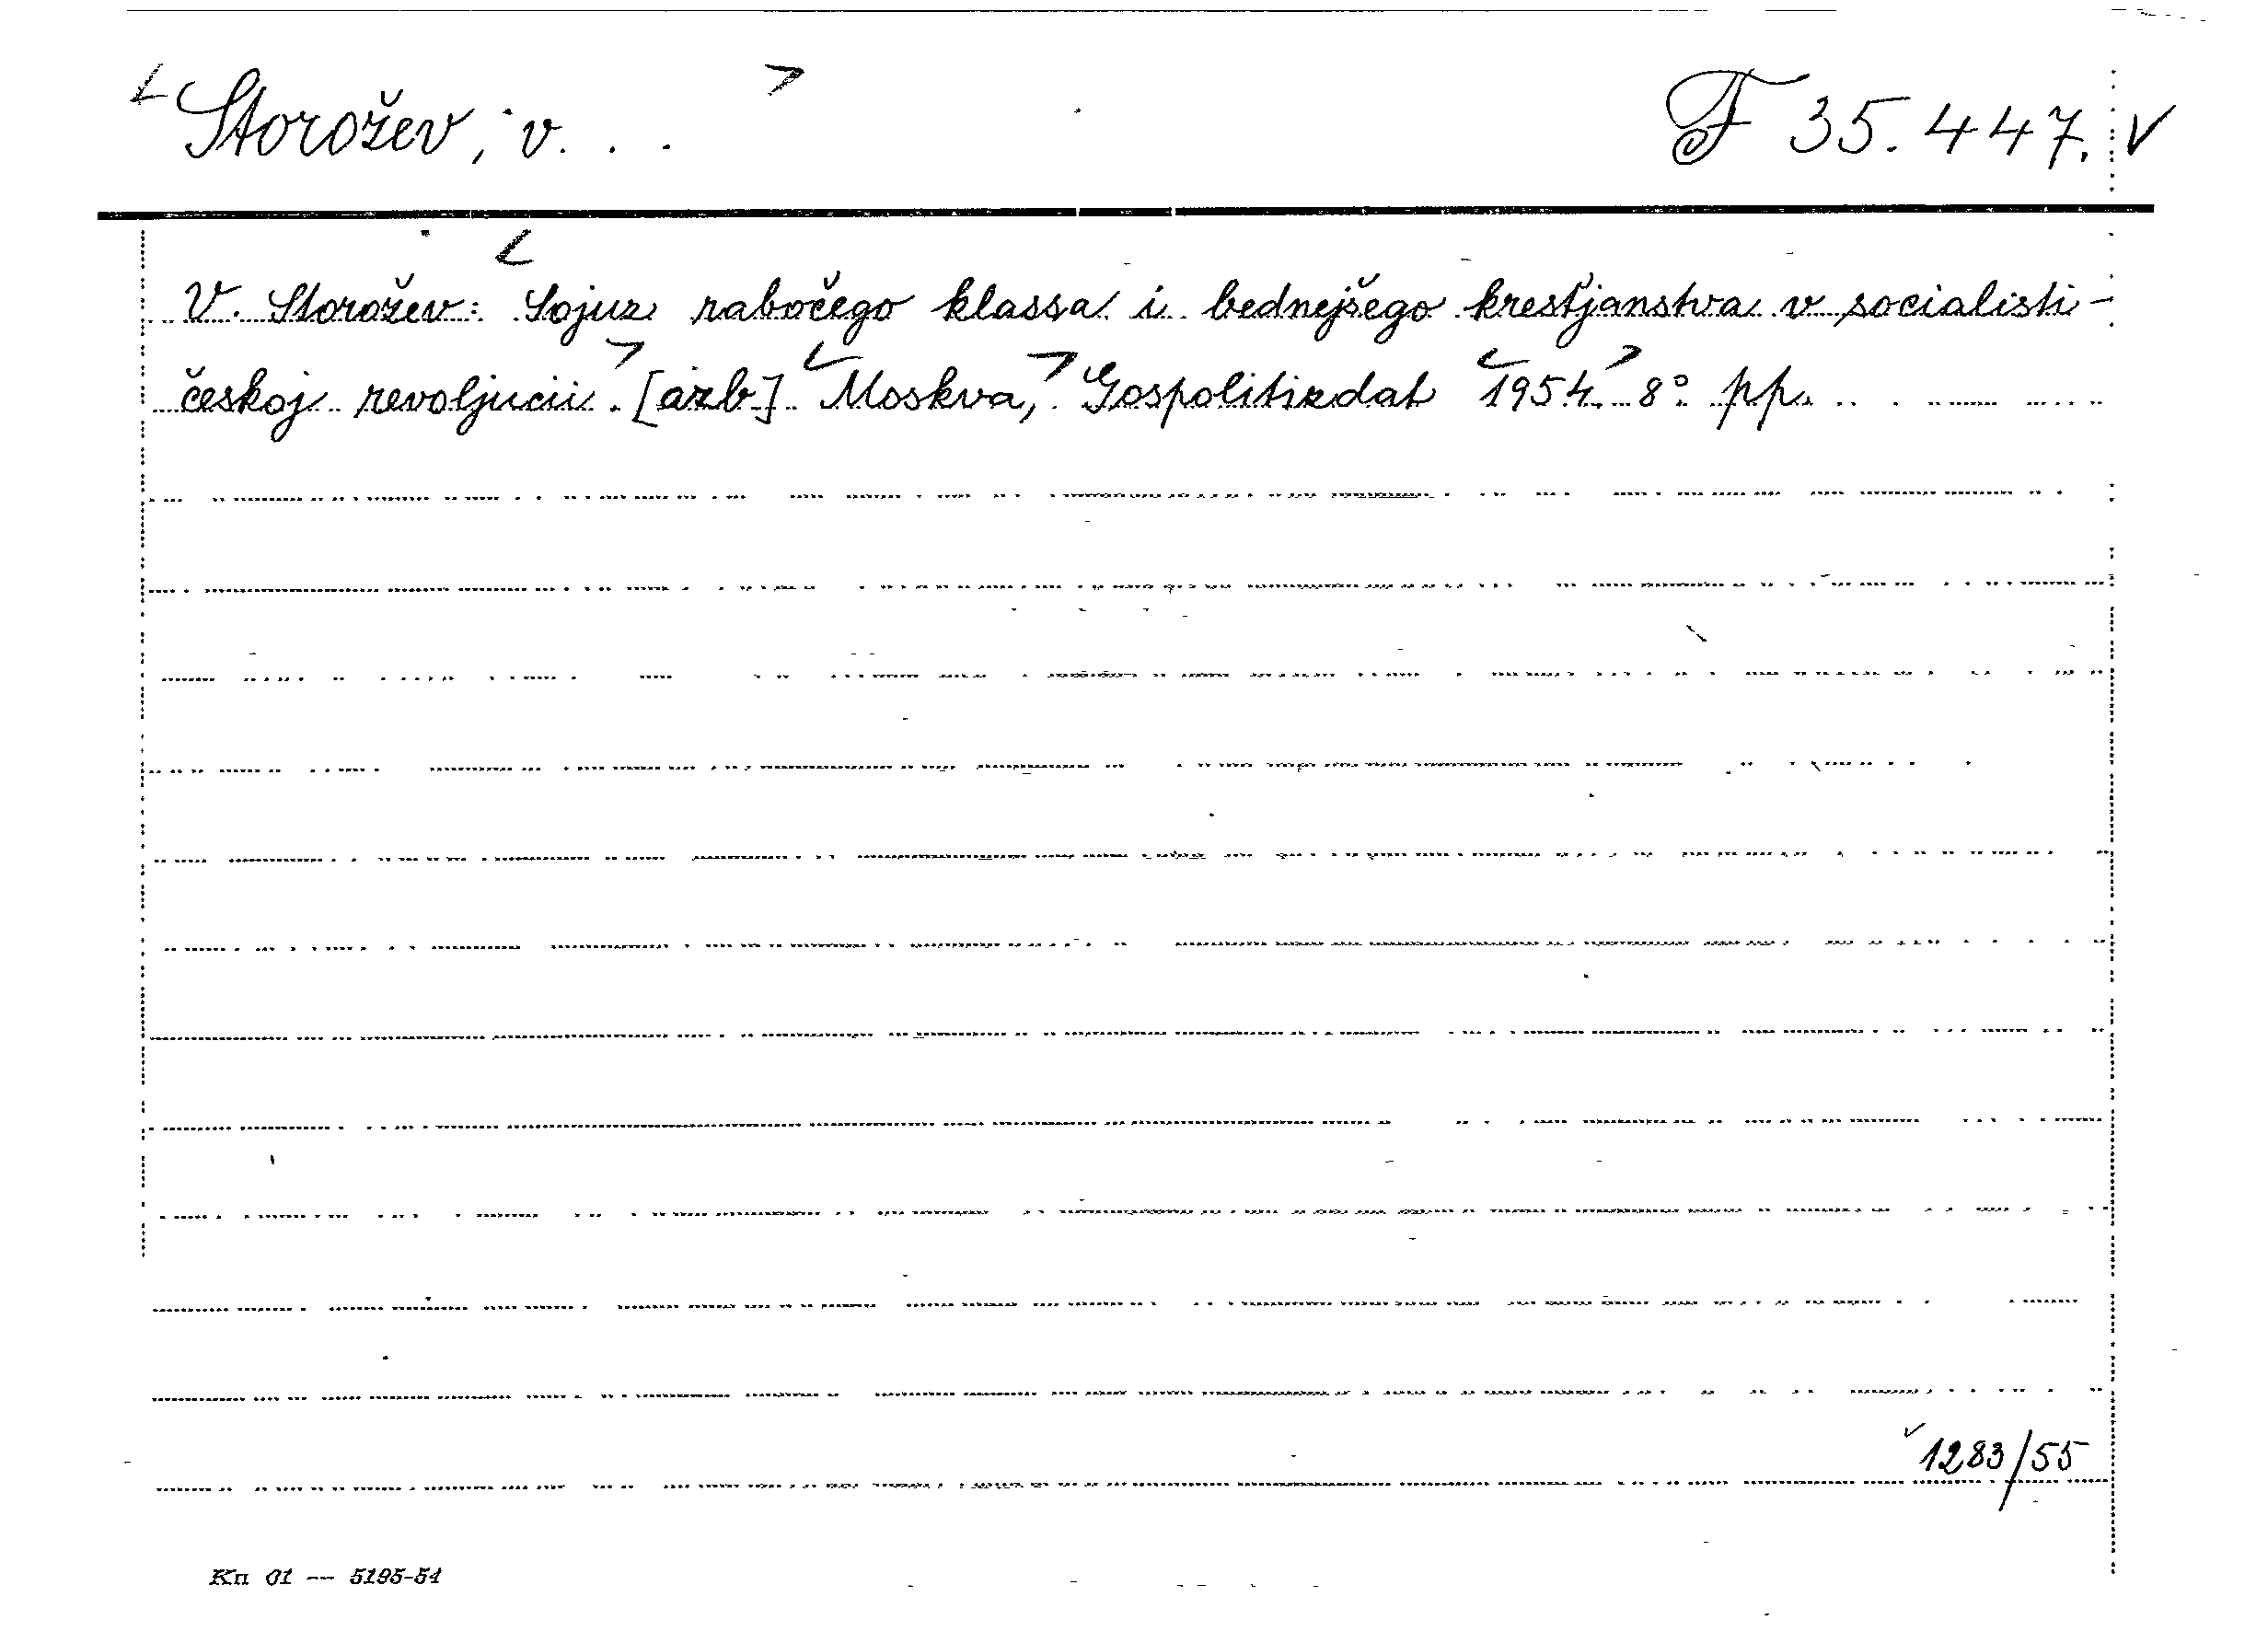 Storožev, V. . .
F 35.447. V
V. Storožev: Sojuz rabočego klassa i bednejšego krestjanstva v socialisti-
českoj revoljucii. [azb] Moskva, Gospolitizdat 1954. 8° pp.
1283/55
Kn 01 — 5195-54